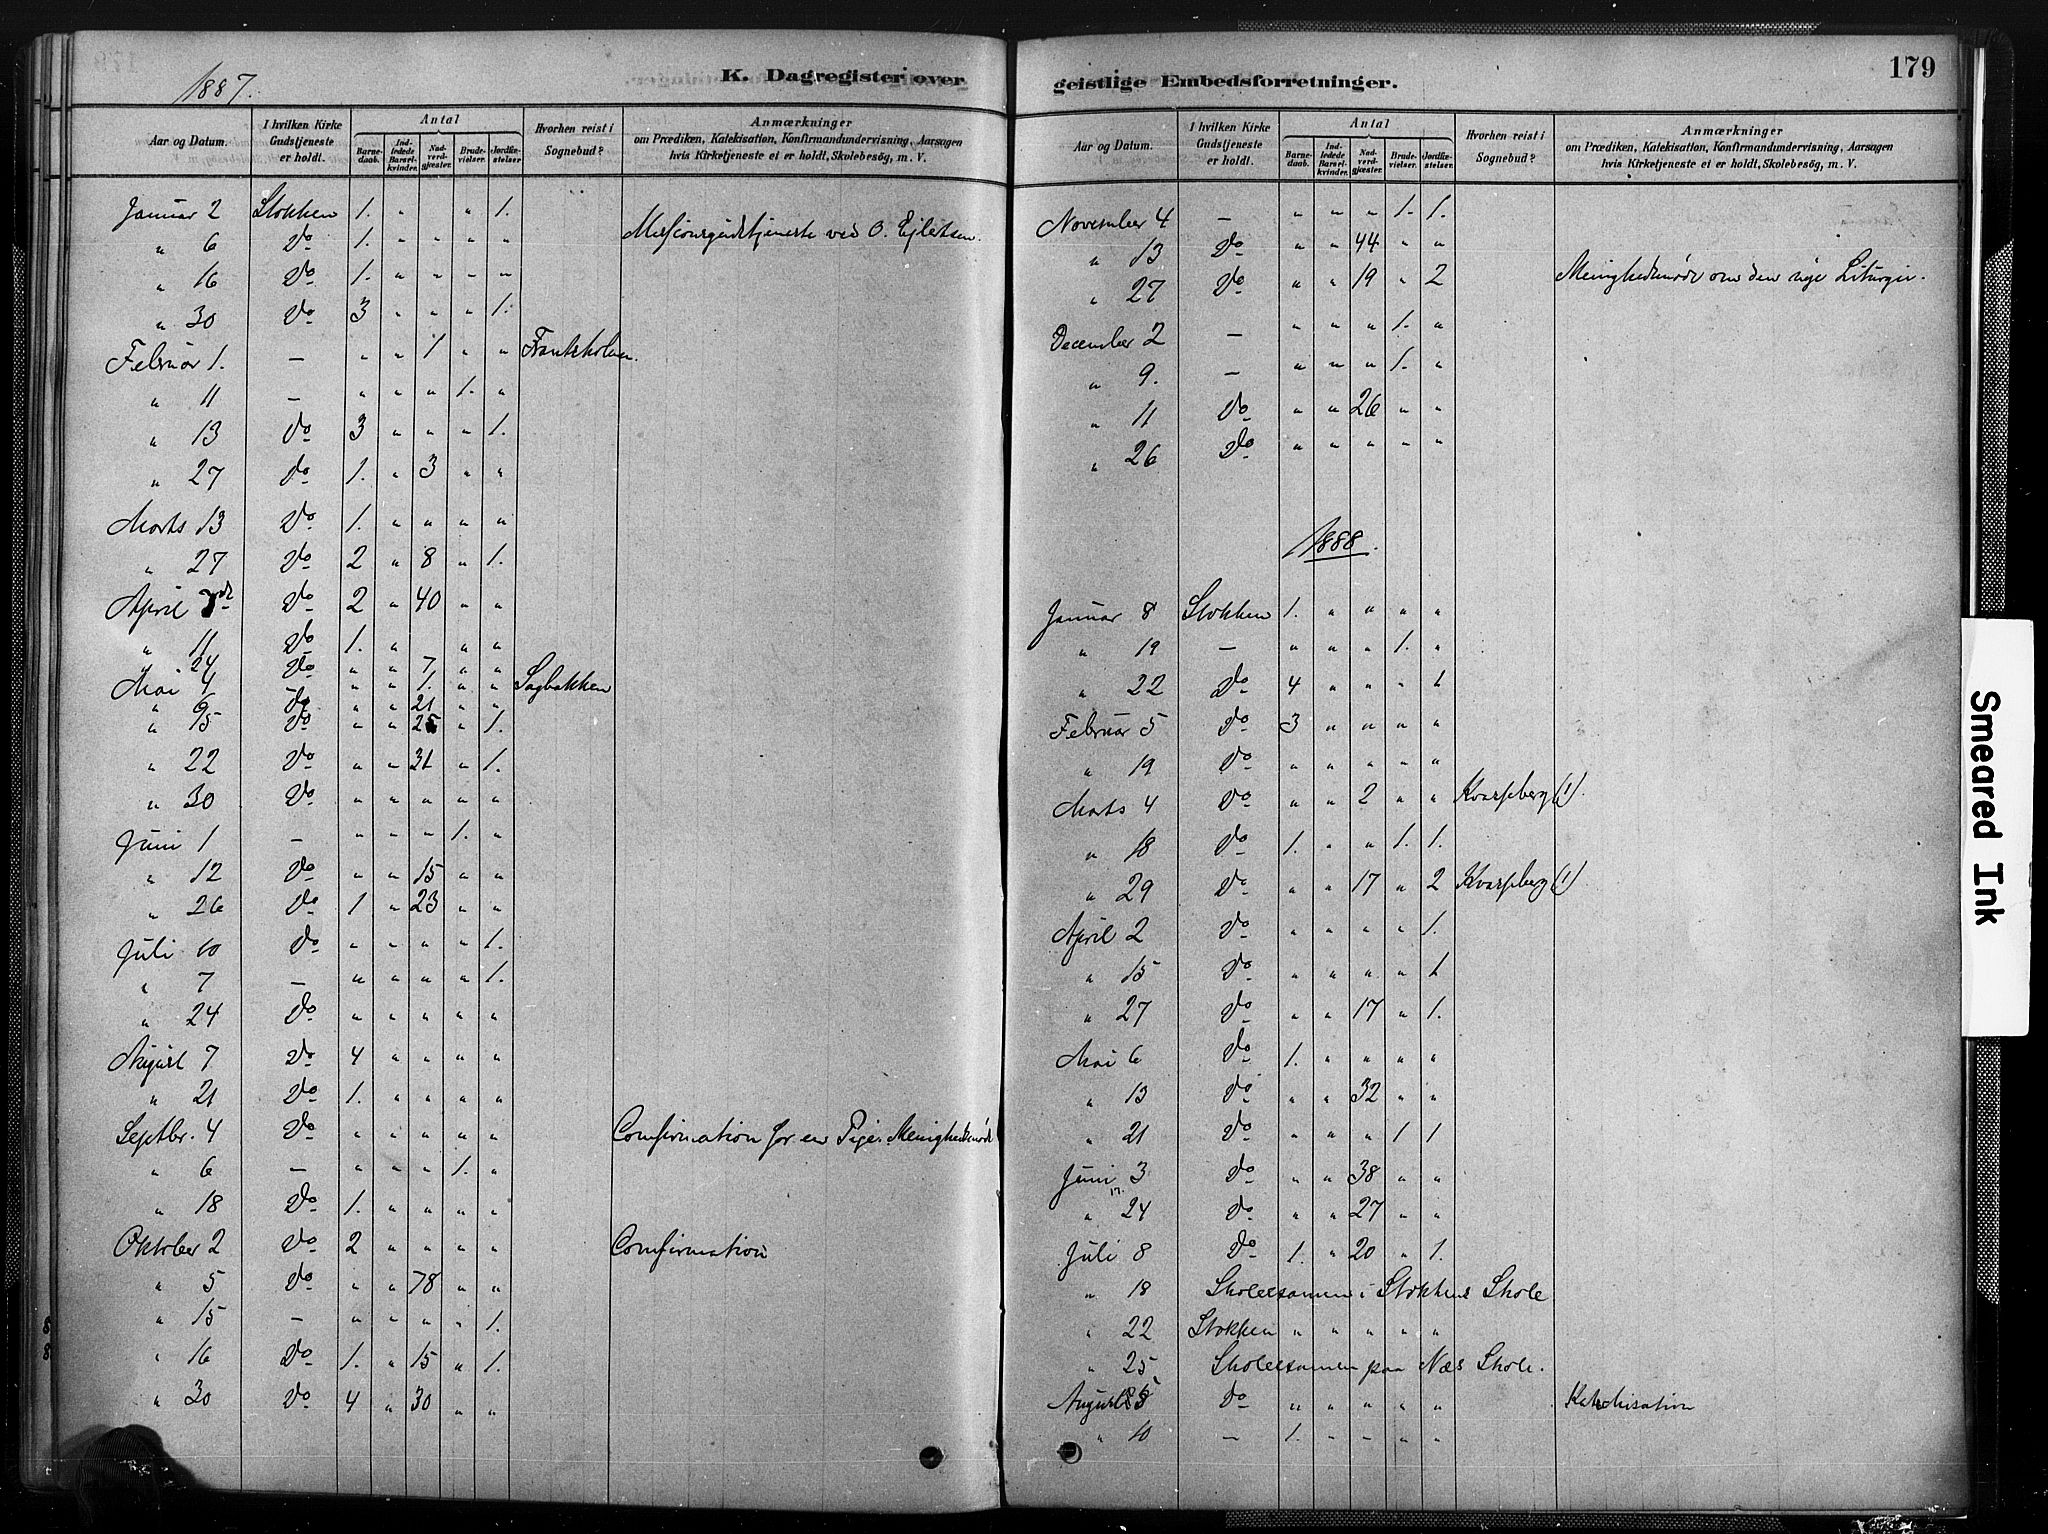 1887.
K. Dagregister over
Aar og Datum. | I hvilken Kirke Gudstjeneste er holdt. | Antal | Barnedaab. | Indledede Barselkvinder. | Nadverdgjæster. | Brudevielser. | Jordfæstelser. | Hvorhen reist i Sognebud? | Anmærkninger om Prædiken, Katekisation, Konfirmandundervisning, Aarsagen hvis Kirketjeneste ei er holdt, Skolebesøg, m. V.
Januar 2 Stokken 1. " " 1.
" 6 Do 1. " " " " Missionsgudstjeneste ved O. Ejlertsen.
" 16 Do 1. " " " "
" 30 Do 3 " " " 1.
Februar 1. – " " 1 " "
" 11 – " " " 1. "
" 13 Do 3 " " " 1.
" 27 Do 1. " 3 " "
Marts 13 Do 1. " " " "
" 27 Do 2 " 8 " 1.
April Do 2 " 40 " "
" 11 Do 1. " " "
" 24 Do " " 7 " "
Mai 4 Do " " 1. " " Sagbakken
" 6 Do " " 21 " "
" 15 Do " " 25 " 1.
" 22 Do " " 31 " 1.
" 30 Do " " " " "
Juni 1 – " " " 1. "
" 12 Do " " 15 " "
" 26 Do 1 " 23 " "
Juli 10 Do " " " " 1.
" 7 – " " " " 1.
" 24 Do " " " " "
August 7 Do 4 " " " "
" 21 Do 1. " " " "
Septbr. 4 Do " " " " " Confirmation for en Pige. Menighedsmøde
" 6 – " " " 1. "
" 18 Do 1. " " " "
Oktober 2 Do 2 " " " " Confirmation
" 5 Do " " 78 " "
" 15 – " " " " 1.
" 16 Do 1. " 15 " 1.
" 30 Do 4 " 30 " "
geistlige Embedsforretninger.
179
Aar og Datum. | I hvilken Kirke Gudstjeneste er holdt. | Antal | Barnedaab. | Indledede Barselkvinder. | Nadverdgjæster. | Brudevielser. | Jordfæstelser. | Hvorhen reist i Sognebud? | Anmærkninger om Prædiken, Katekisation, Konfirmandundervisning, Aarsagen hvis Kirketjeneste ei er holdt, Skolebesøg, m. V.
November 4 – " " " 1. 1.
" 13 Do " " 44 " "
" 27 Do " " 19 " 2 Menighedsmøde om den nye Liturgie.
December 2 – " " " 1. "
" 9. – " " " 1. "
" 11 Do " " 26 " "
" 26 Do " " " " "
1888.
Januar 8 Stokken 1. " " " "
" 19 – " " " 1. "
" 22 Do 4 " " " 1
Februar 5 Do 3 " " " "
" 19 Do " " " " "
Marts 4 Do " " 2 " " Kvarpberg (1).
" 18 Do 1. " " 1. 1.
" 29 Do " " 17 " 2 Kvarpberg (1)
April 2 Do " " " " 1.
" 15 Do " " " " 1
" 27 Do " " 17 " 1.
Mai 6 Do 1. " " " "
" 13 Do " " 32 " "
" 21 Do " " " 1 1
Juni 3 Do " " 38 " "
17.
" 24 Do " " 27 " "
Juli 8 Do 1. " 20 " 1.
" 18 Skoleexamen i Stokkens Skole
" 22 Stokken " " " " "
" 25 Skoleexamen paa Næs Skole.
August 5 Do " " " " " Katechisation
" 10 – 1. " " " "
Smeared Ink